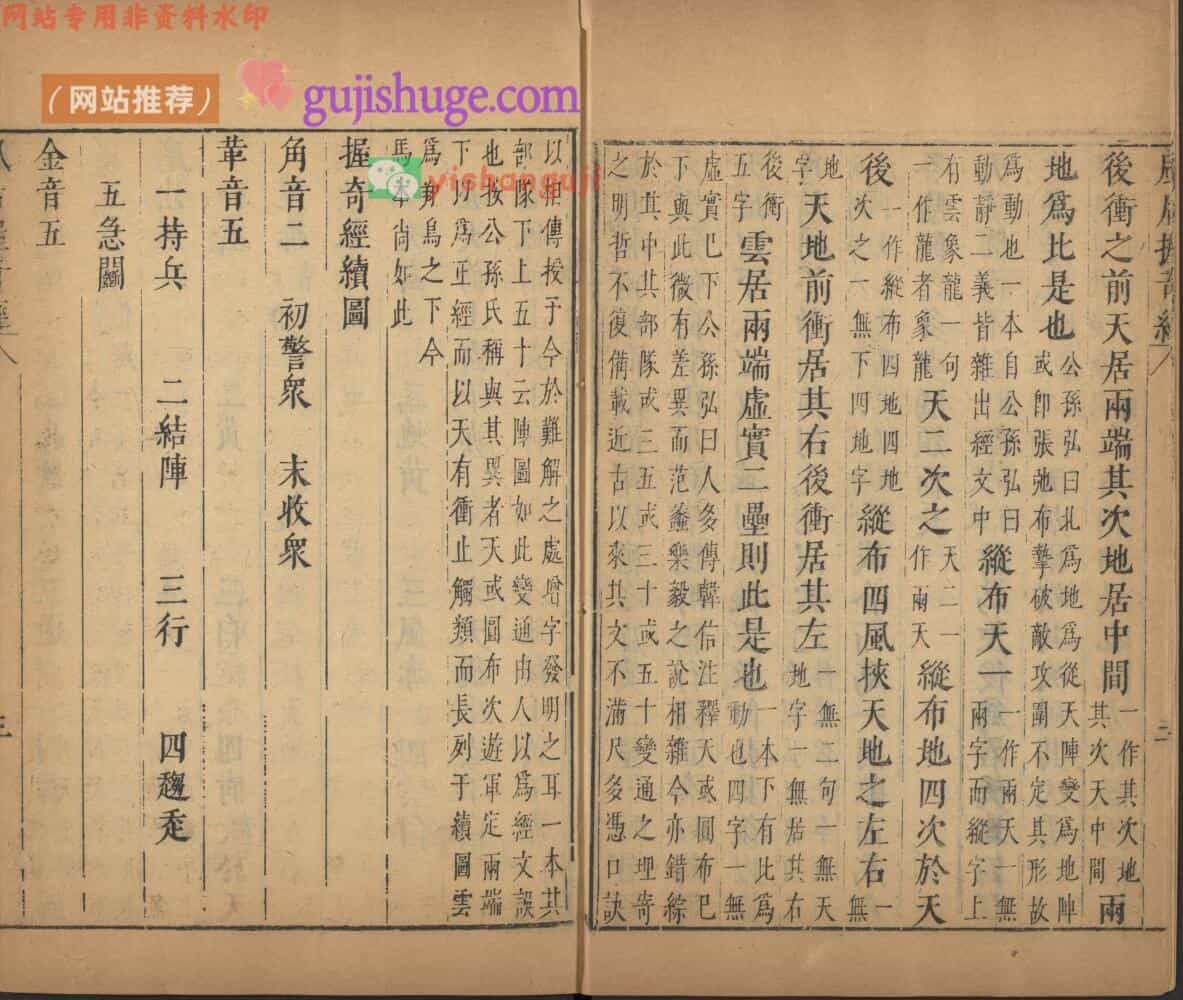 網站专用非资料水印
（网站推荐）
gujishuge.com
yishanguji
二
後衝之前天居兩端其次地居中間一作其次地其次天中間兩
地為比是也公孫弘曰北為地為從天陣變為地陣或卽張弛布擊破敵攻圍不定其形故
為動也一本自公孫弘曰動靜二義皆雜出經文中縱布天一一作兩天一無兩字而縱字上
有雲象龍一句一作龍者象龍天二次之天二一作兩天縱布地四次於天
後一作縱布四地四地次之一無下四地字縱布四風挾天地之左右一無
地字天地前衝居其右後衝居其左一無二句一無天地字一無居其右
後衝五字雲居兩端虛實二壘則此是也一本下有比為動也四字一無
虛實已下公孫弘曰人多傳韓信注釋天或圓布已
下與此微有差異而范蠡樂毅之說相雜今亦錯綜
於其中其部隊或三五或三十或五十變通之理奇
之明哲不復備載近古以來其文不滿尺多憑口訣
以相傳授于今於難解之處增字發明之耳一本其
部隊下上五十云陣圖如此變通由人以為經文誤
也按公孫氏稱與其異者天或圓布次遊軍定兩端
下以為正經而以天有衝止觸類而長列于續圖雲
為身鳥之下今
馬本尚如此
握奇經續圖
角音二　初警衆　末收衆
革音五
一持兵　二結陣　三行　四趨走
五急鬭
金音五
三